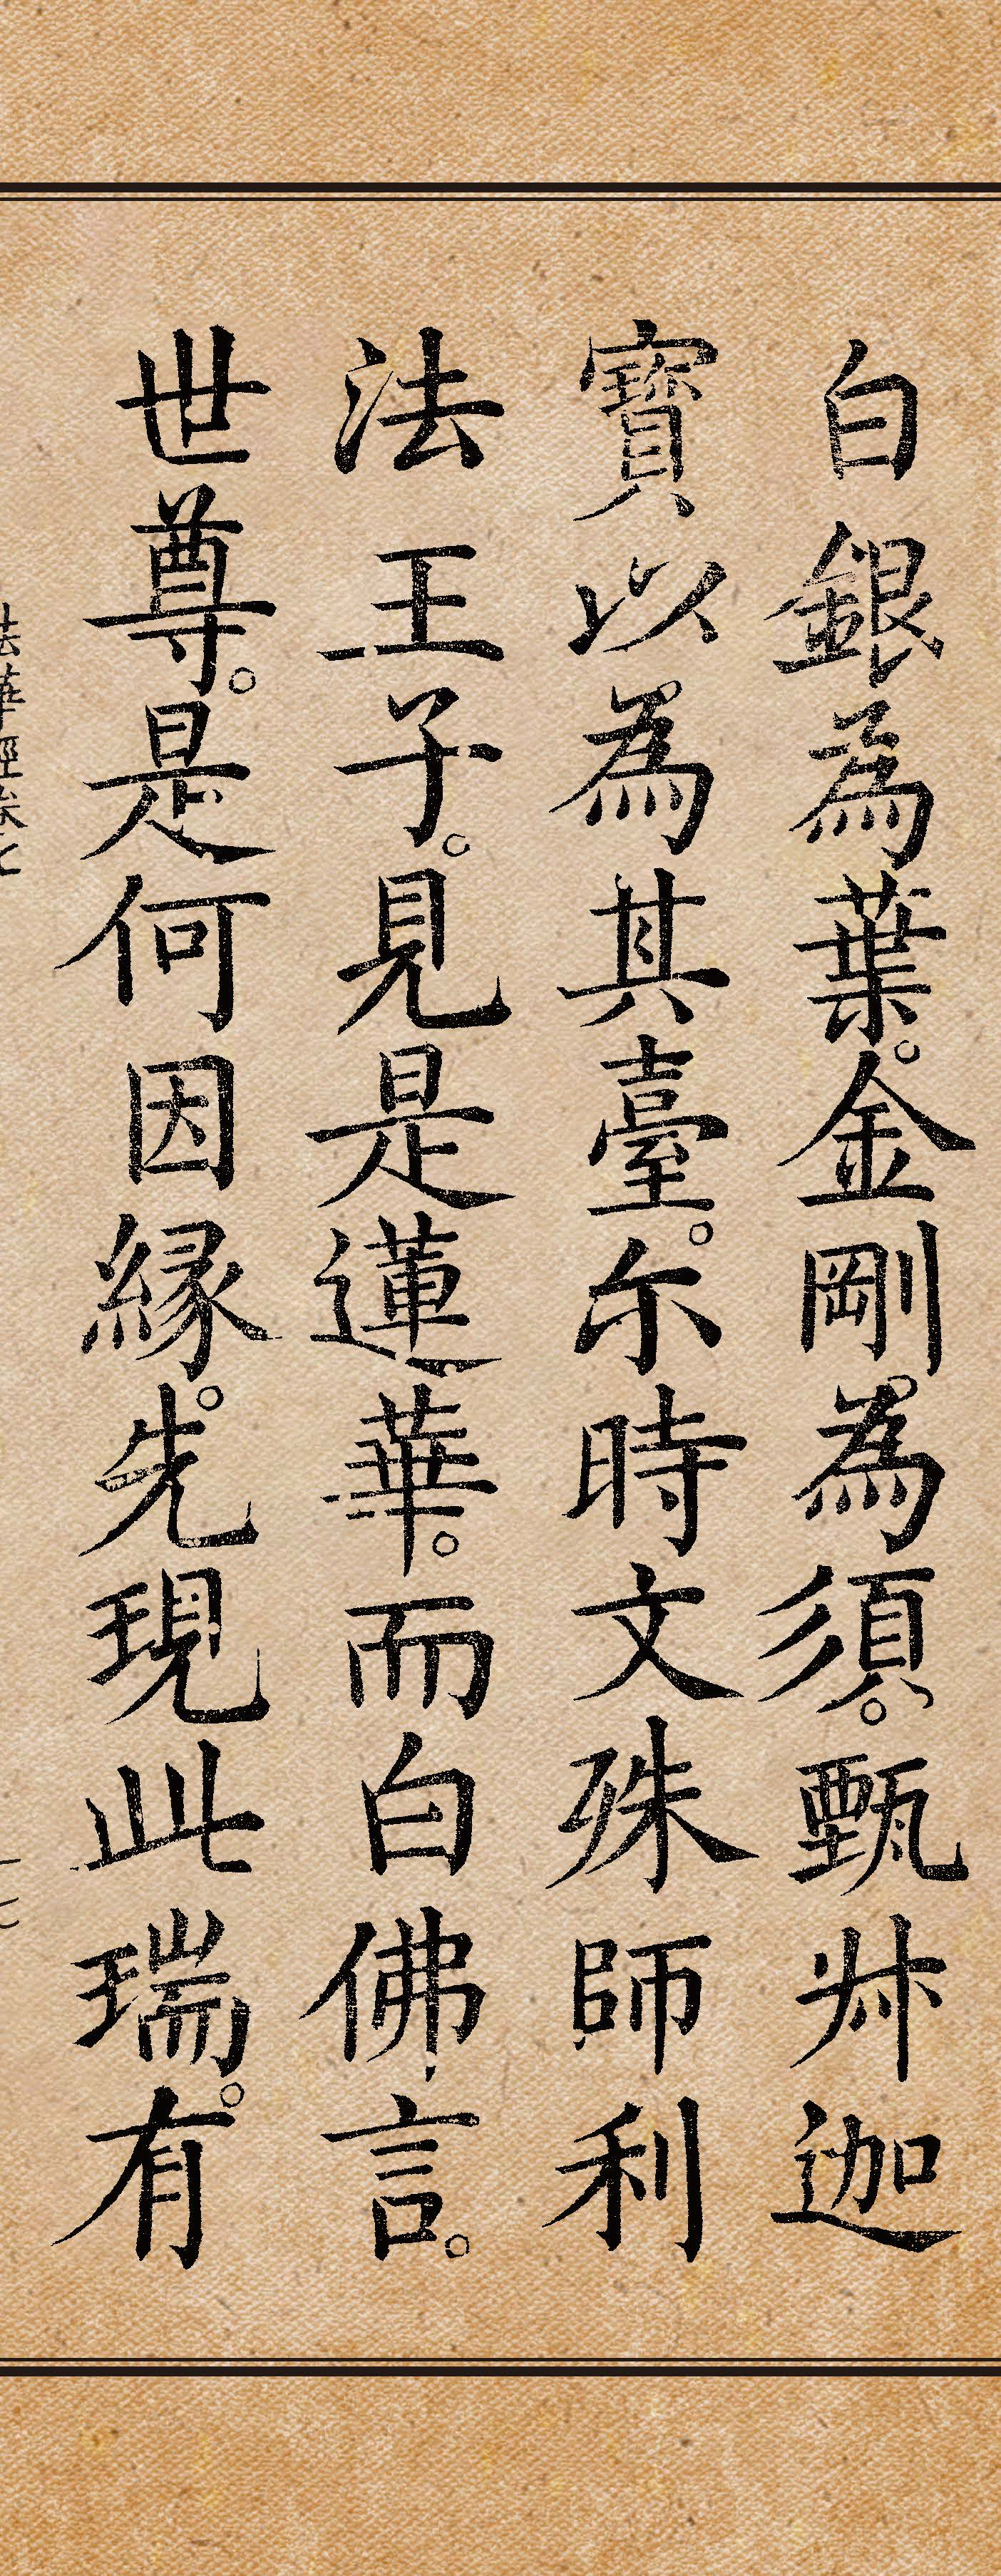 白銀為葉。金剛為須。甄舛迦
寶以為其臺。尒時文殊師利
法王子。見是蓮華。而白佛言。
世尊。是何因緣。先現此瑞。有
法華經卷七